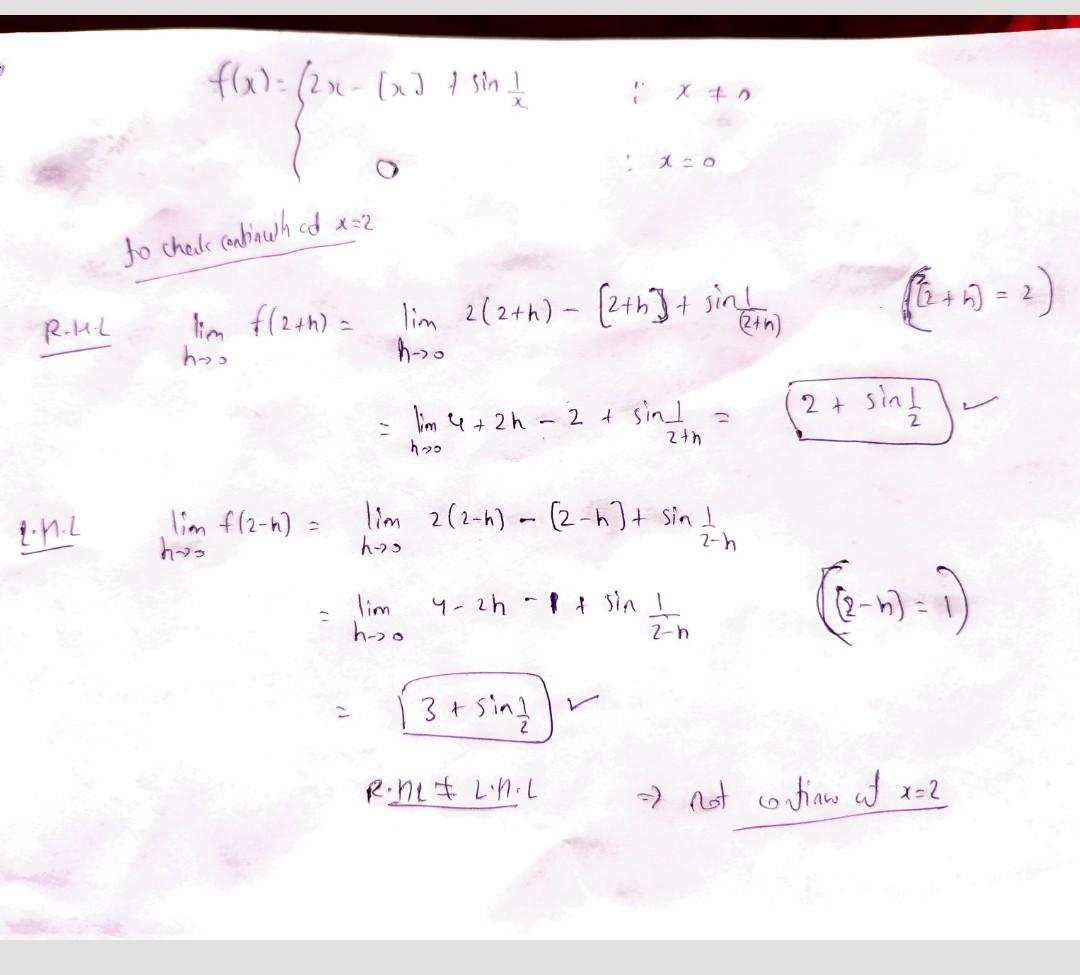 f(x) = { 2x - [x] + sin 1/x ; x ≠ 0
0 : x = 0
to check at x=2
R.H.L lim h→0 f(2+h) = lim h→0 2(2+h) - [2+h] + sin 1/(2+h) ([2+h] = 2)
= lim h→0 4 + 2h - 2 + sin 1/2+h = 2 + sin 1/2 ✓
L.H.L lim h→0 f(2-h) = lim h→0 2(2-h) - [2-h] + sin 1/2-h
= lim h→0 4 - 2h - 1 + sin 1/2-h ([2-h] = 1)
= 3 + sin 1/2 ✓
R.HL ≠ L.H.L ⇒ not at x=2